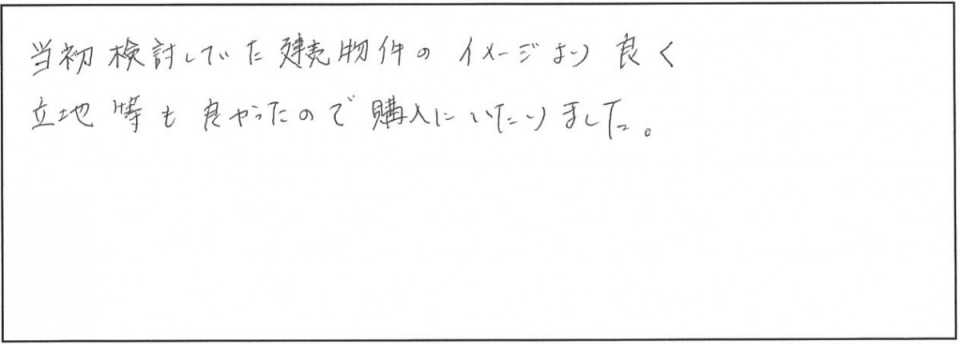 当初検討していた建売物件のイメージより良く
立地等も良かったので購入にいたりました。